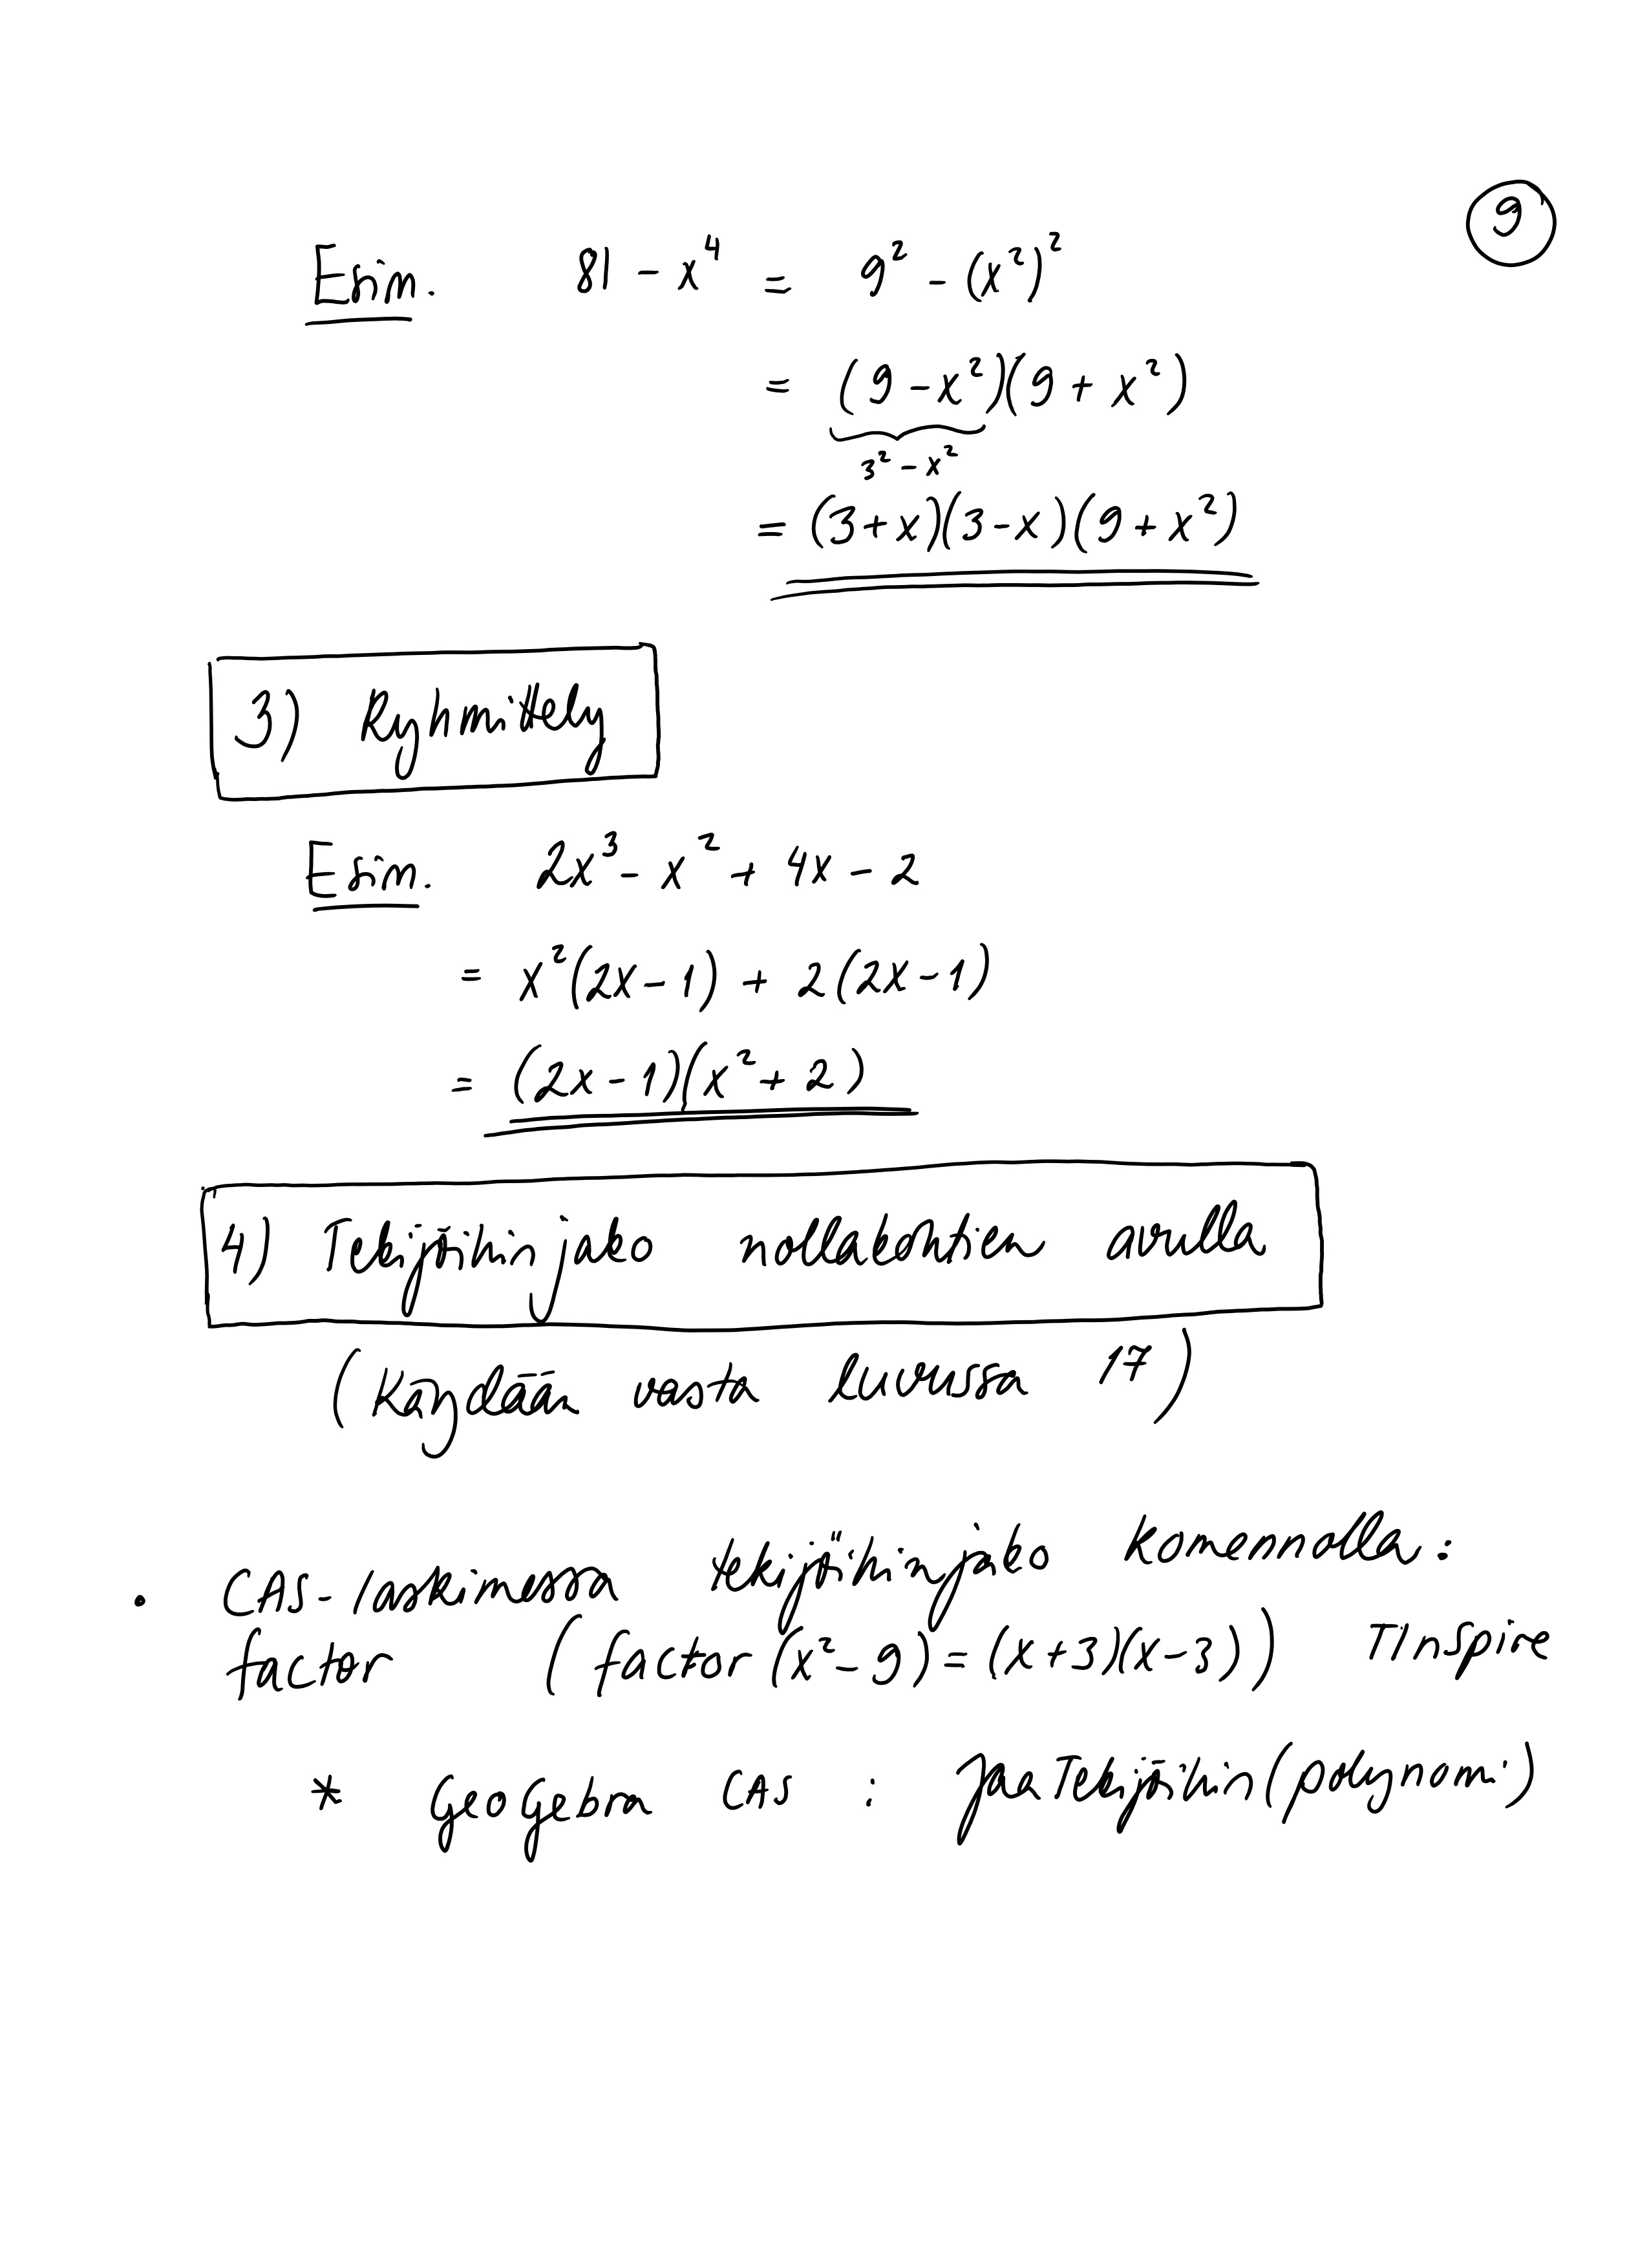 9
Esim. 81 - x⁴ = 9² - (x²)²
= (9 - x²)(9 + x²)
3² - x²
= (3 + x)(3 - x)(9 + x²)
3) Ryhmittely
Esim. 2x³ - x² + 4x - 2
= x²(2x - 1) + 2(2x - 1)
= (2x - 1)(x² + 2)
4) Tekijöihinjako nollakohtien avulla
(Käydään vasta luvussa 17)
• CAS-laskimessa tekijöihinjako komennolla:
factor (factor(x² - 9) = (x + 3)(x - 3)) TInspire
* Geogebra CAS : JaaTekijöihin(polynomi)